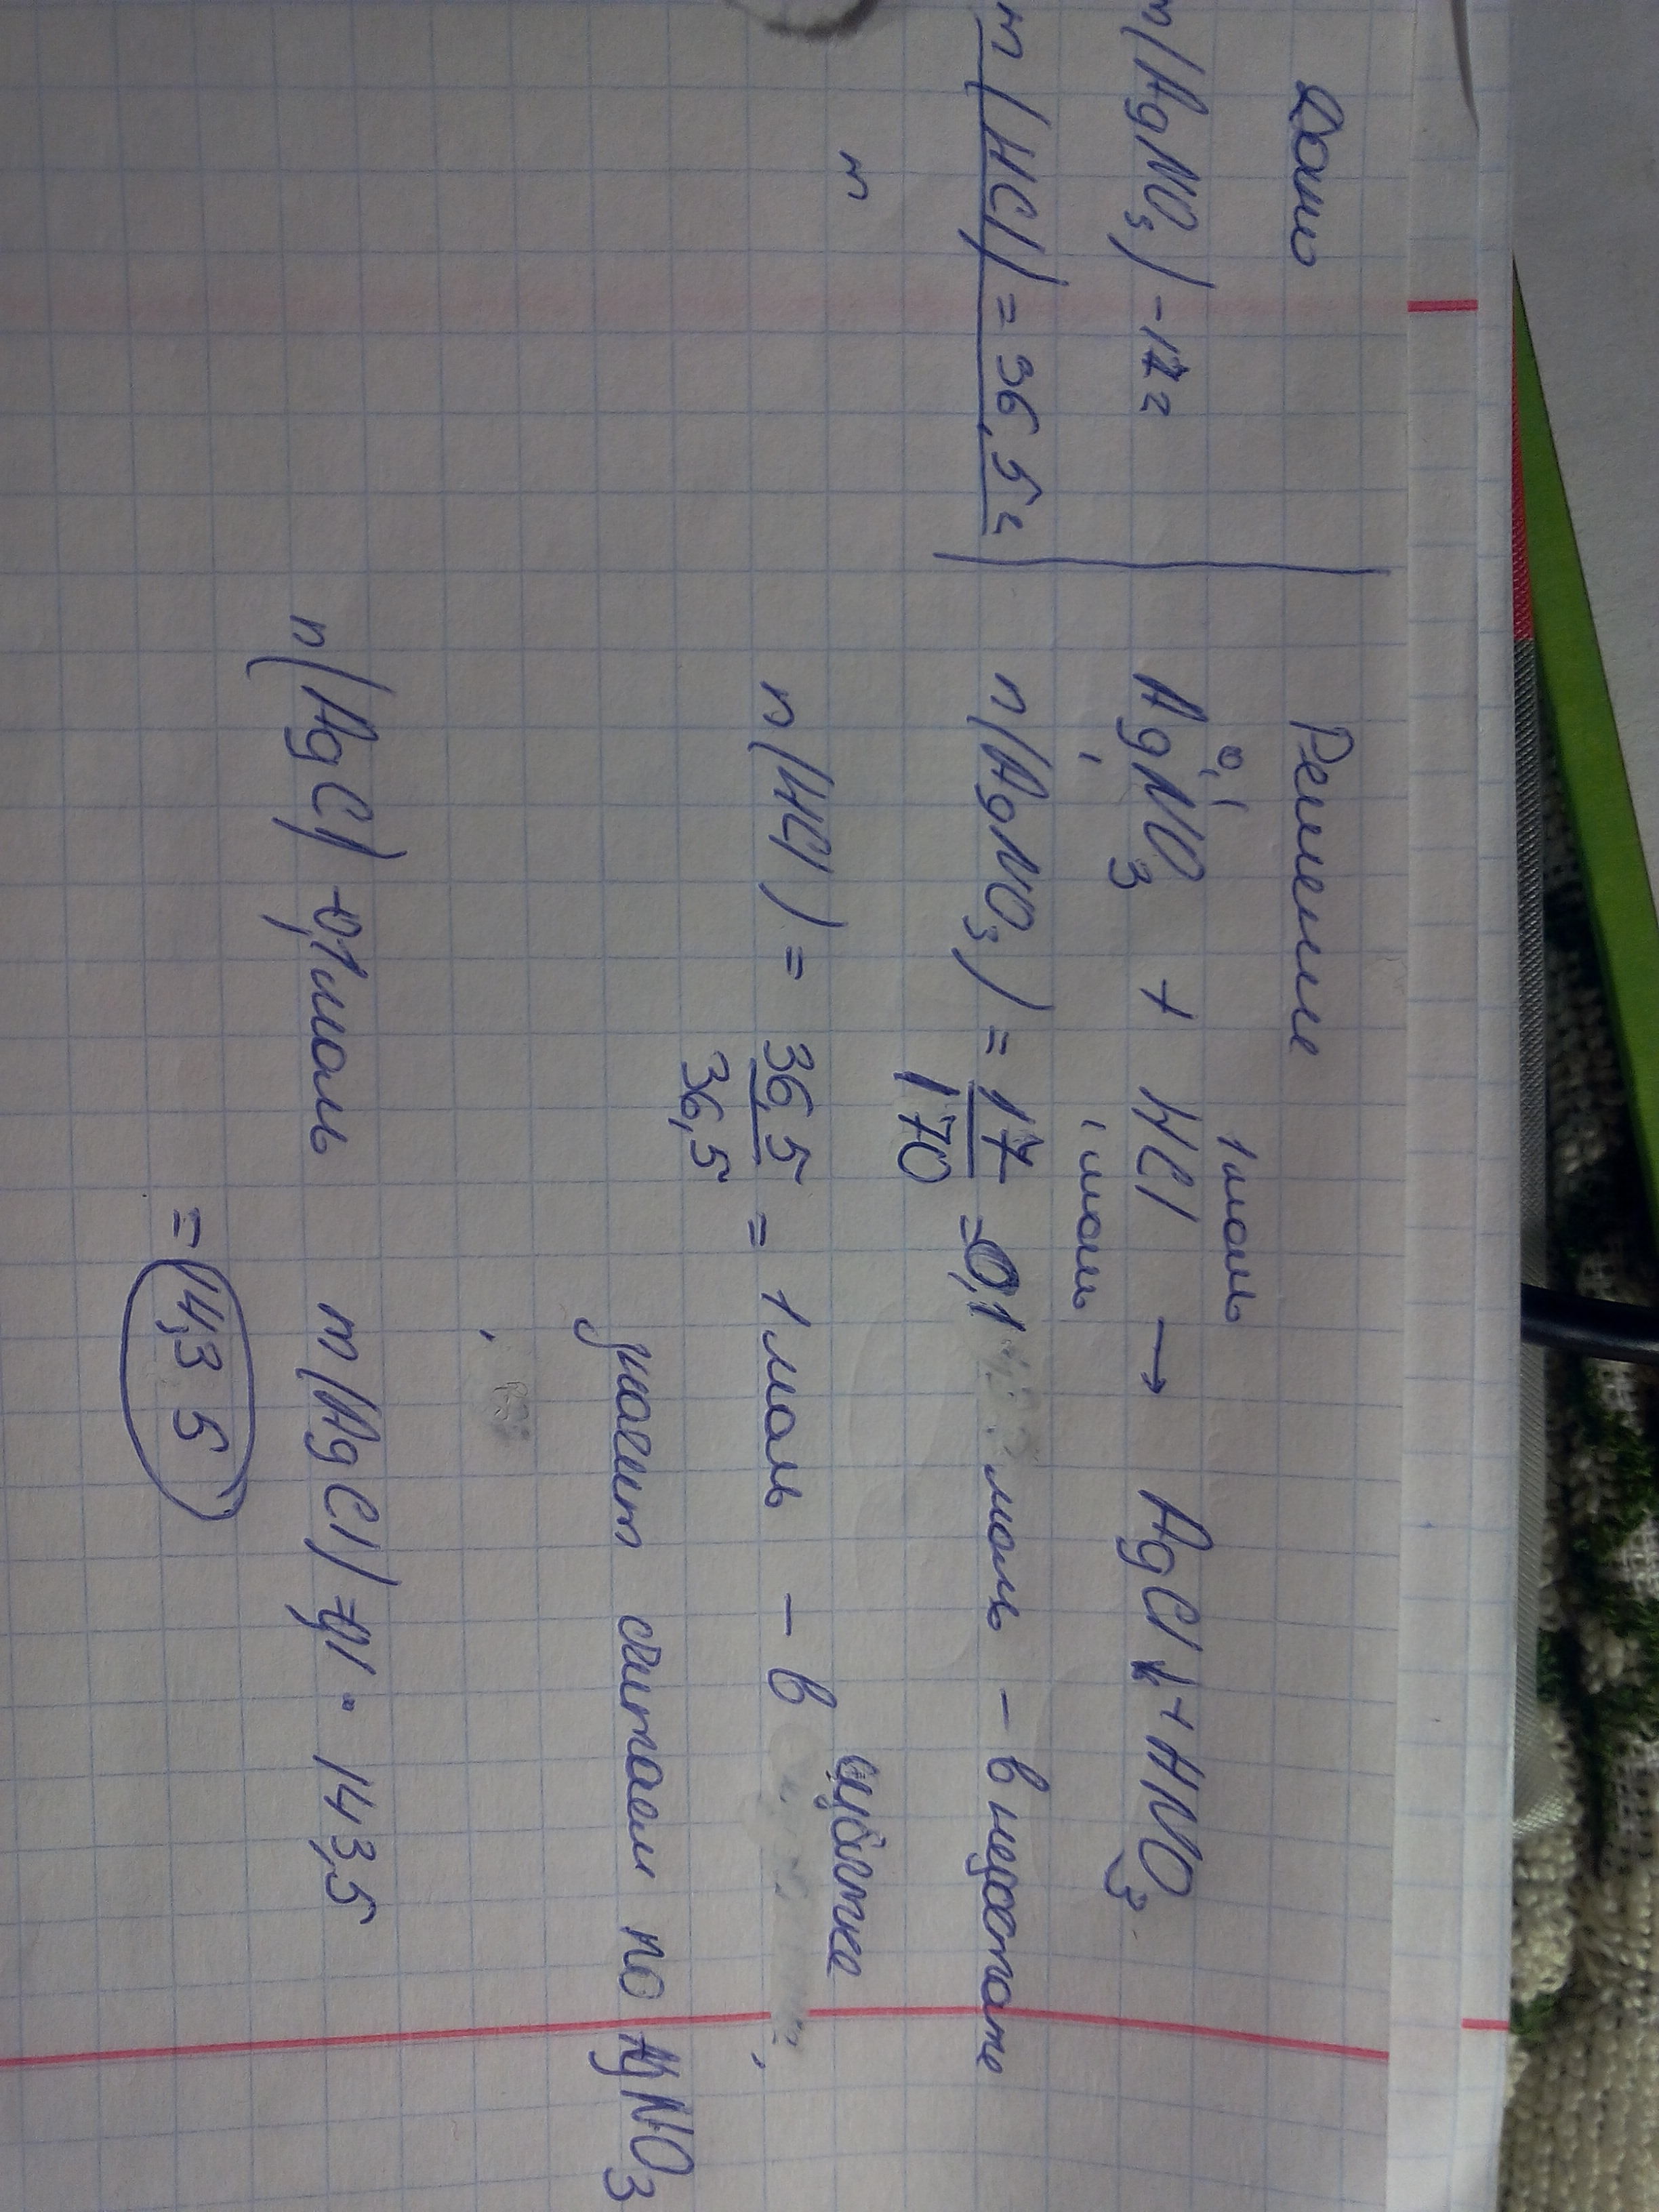 Дано
m(AgNO3) - 17г
m(HCl) = 36,5г
m
Решение
0,1 1 моль
AgNO3 + HCl → AgCl↓ + HNO3
1 моль
n(AgNO3) = 17/170 = 0,1 моль - в недостатке
n(HCl) = 36,5/36,5 = 1 моль - в избытке
значит считаем по AgNO3
n(AgCl) - 0,1 моль m(AgCl) = 0,1 · 143,5
= 14,35